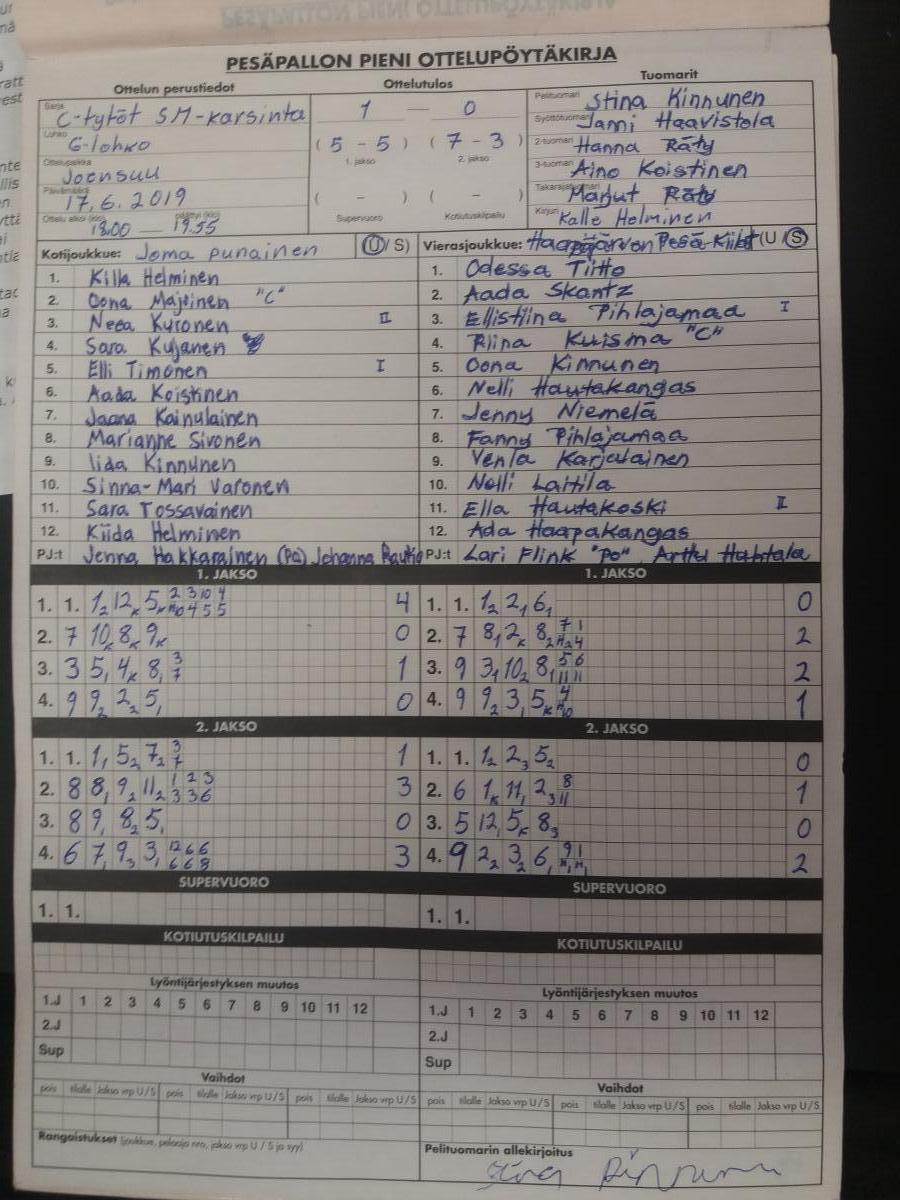 PESÄPALLON PIENI OTTELUPÖYTÄKIRJA
Ottelun perustiedot
Ottelutulos
Tuomarit
Sarja C-tytöt SM-karsinta
Lohko G-lohko
Ottelupaikka Joensuu
Päivämäärä 17.6.2019
Ottelu alkoi (klo) 18.00 — päättyi (klo) 19.55
1 — 0
( 5 - 5 ) ( 7 - 3 )
1. jakso 2. jakso
( - ) ( - )
Supervuoro Kotiutuskilpailu
Pelituomari Stina Kinnunen
Syöttötuomari Janni Haavistola
2-tuomari Hanna Räty
3-tuomari Aino Koistinen
Takarajatuomari Marjut Räty
Kirjuri Kalle Helminen
Kotijoukkue: Joma punainen (U/S)
1. Killa Helminen
2. Oona Majoinen "C"
3. Neea Kyrönen II
4. Sara Kujanen
5. Elli Timonen I
6. Aada Koistinen
7. Jaana Kainulainen
8. Marianne Sivonen
9. Iida Kinnunen
10. Sinna-Mari Varonen
11. Sara Tossavainen
12. Kiida Helminen
PJ:t Jenna Hakkarainen (PO) Johanna Rautio
Vierasjoukkue: Haapajärven Pesä-Kiilat (U/S)
1. Odessa Tiitto
2. Aada Skantz
3. Ellistiina Pihlajamaa I
4. Riina Kuisma "C"
5. Oona Kinnunen
6. Nelli Hautakangas
7. Jenny Niemelä
8. Fanny Pihlajamaa
9. Venla Karjalainen
10. Nelli Laitila
11. Ella Hautakoski II
12. Ada Haapakangas
PJ:t Lari Flink "PO" Arttu Huhtala
1. JAKSO
1. 1. 4
2. 7 10 8 9 0
3. 3 5 4 8 1
4. 9 9 2 5 0
1. JAKSO
1. 1. 1 2 6 0
2. 7 8 2 8 2
3. 9 3 10 8 2
4. 9 9 3 5 1
2. JAKSO
1. 1. 1 5 7 1
2. 8 8 9 11 3
3. 8 9 8 5 0
4. 6 7 9 3 3
2. JAKSO
1. 1. 1 2 5 0
2. 6 1 11 2 1
3. 5 12 5 8 0
4. 9 2 3 6 2
SUPERVUORO
1. 1.
SUPERVUORO
1. 1.
KOTIUTUSKILPAILU
KOTIUTUSKILPAILU
Lyöntijärjestyksen muutos
1.J 1 2 3 4 5 6 7 8 9 10 11 12
2.J
Sup
Lyöntijärjestyksen muutos
1.J 1 2 3 4 5 6 7 8 9 10 11 12
2.J
Sup
Vaihdot
pois tilalle Jakso vrp U/S pois tilalle Jakso vrp U/S pois tilalle Jakso vrp U/S
Vaihdot
pois tilalle Jakso vrp U/S pois tilalle Jakso vrp U/S pois tilalle Jakso vrp U/S
Rangaistukset (joukkue, pelaaja nro, jakso vrp U / S ja syy)
Pelituomarin allekirjoitus